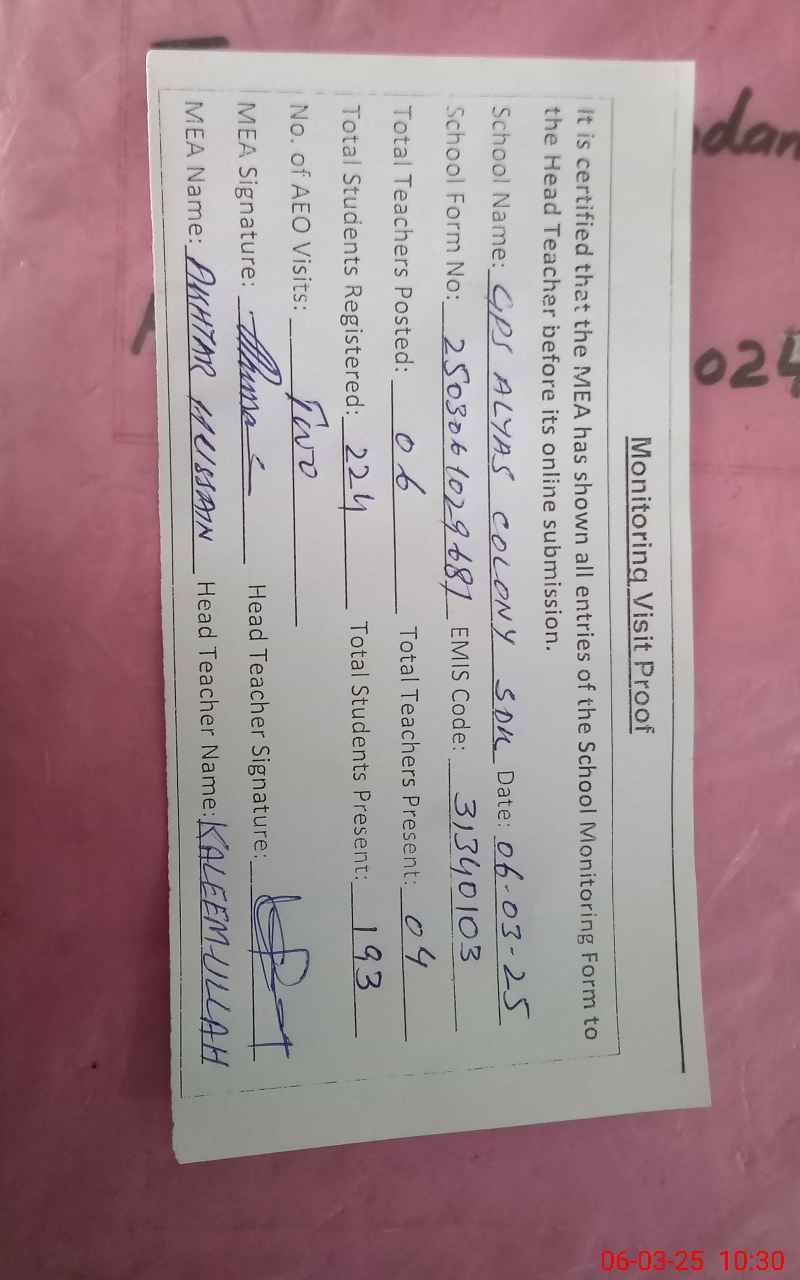 Monitoring Visit Proof
It is certified that the MEA has shown all entries of the School Monitoring Form to
the Head Teacher before its online submission.
School Name: GPS ALYAS COLONY SDK Date: 06-03-25
School Form No: 2503061029687 EMIS Code: 31340103
Total Teachers Posted: 06 Total Teachers Present: 04
Total Students Registered: 224 Total Students Present: 193
No. of AEO Visits: Two
MEA Signature: Head Teacher Signature:
MEA Name: AKHTAR HUSSAIN Head Teacher Name: KALEEM-ULLAH
dan
024
06-03-25 10:30